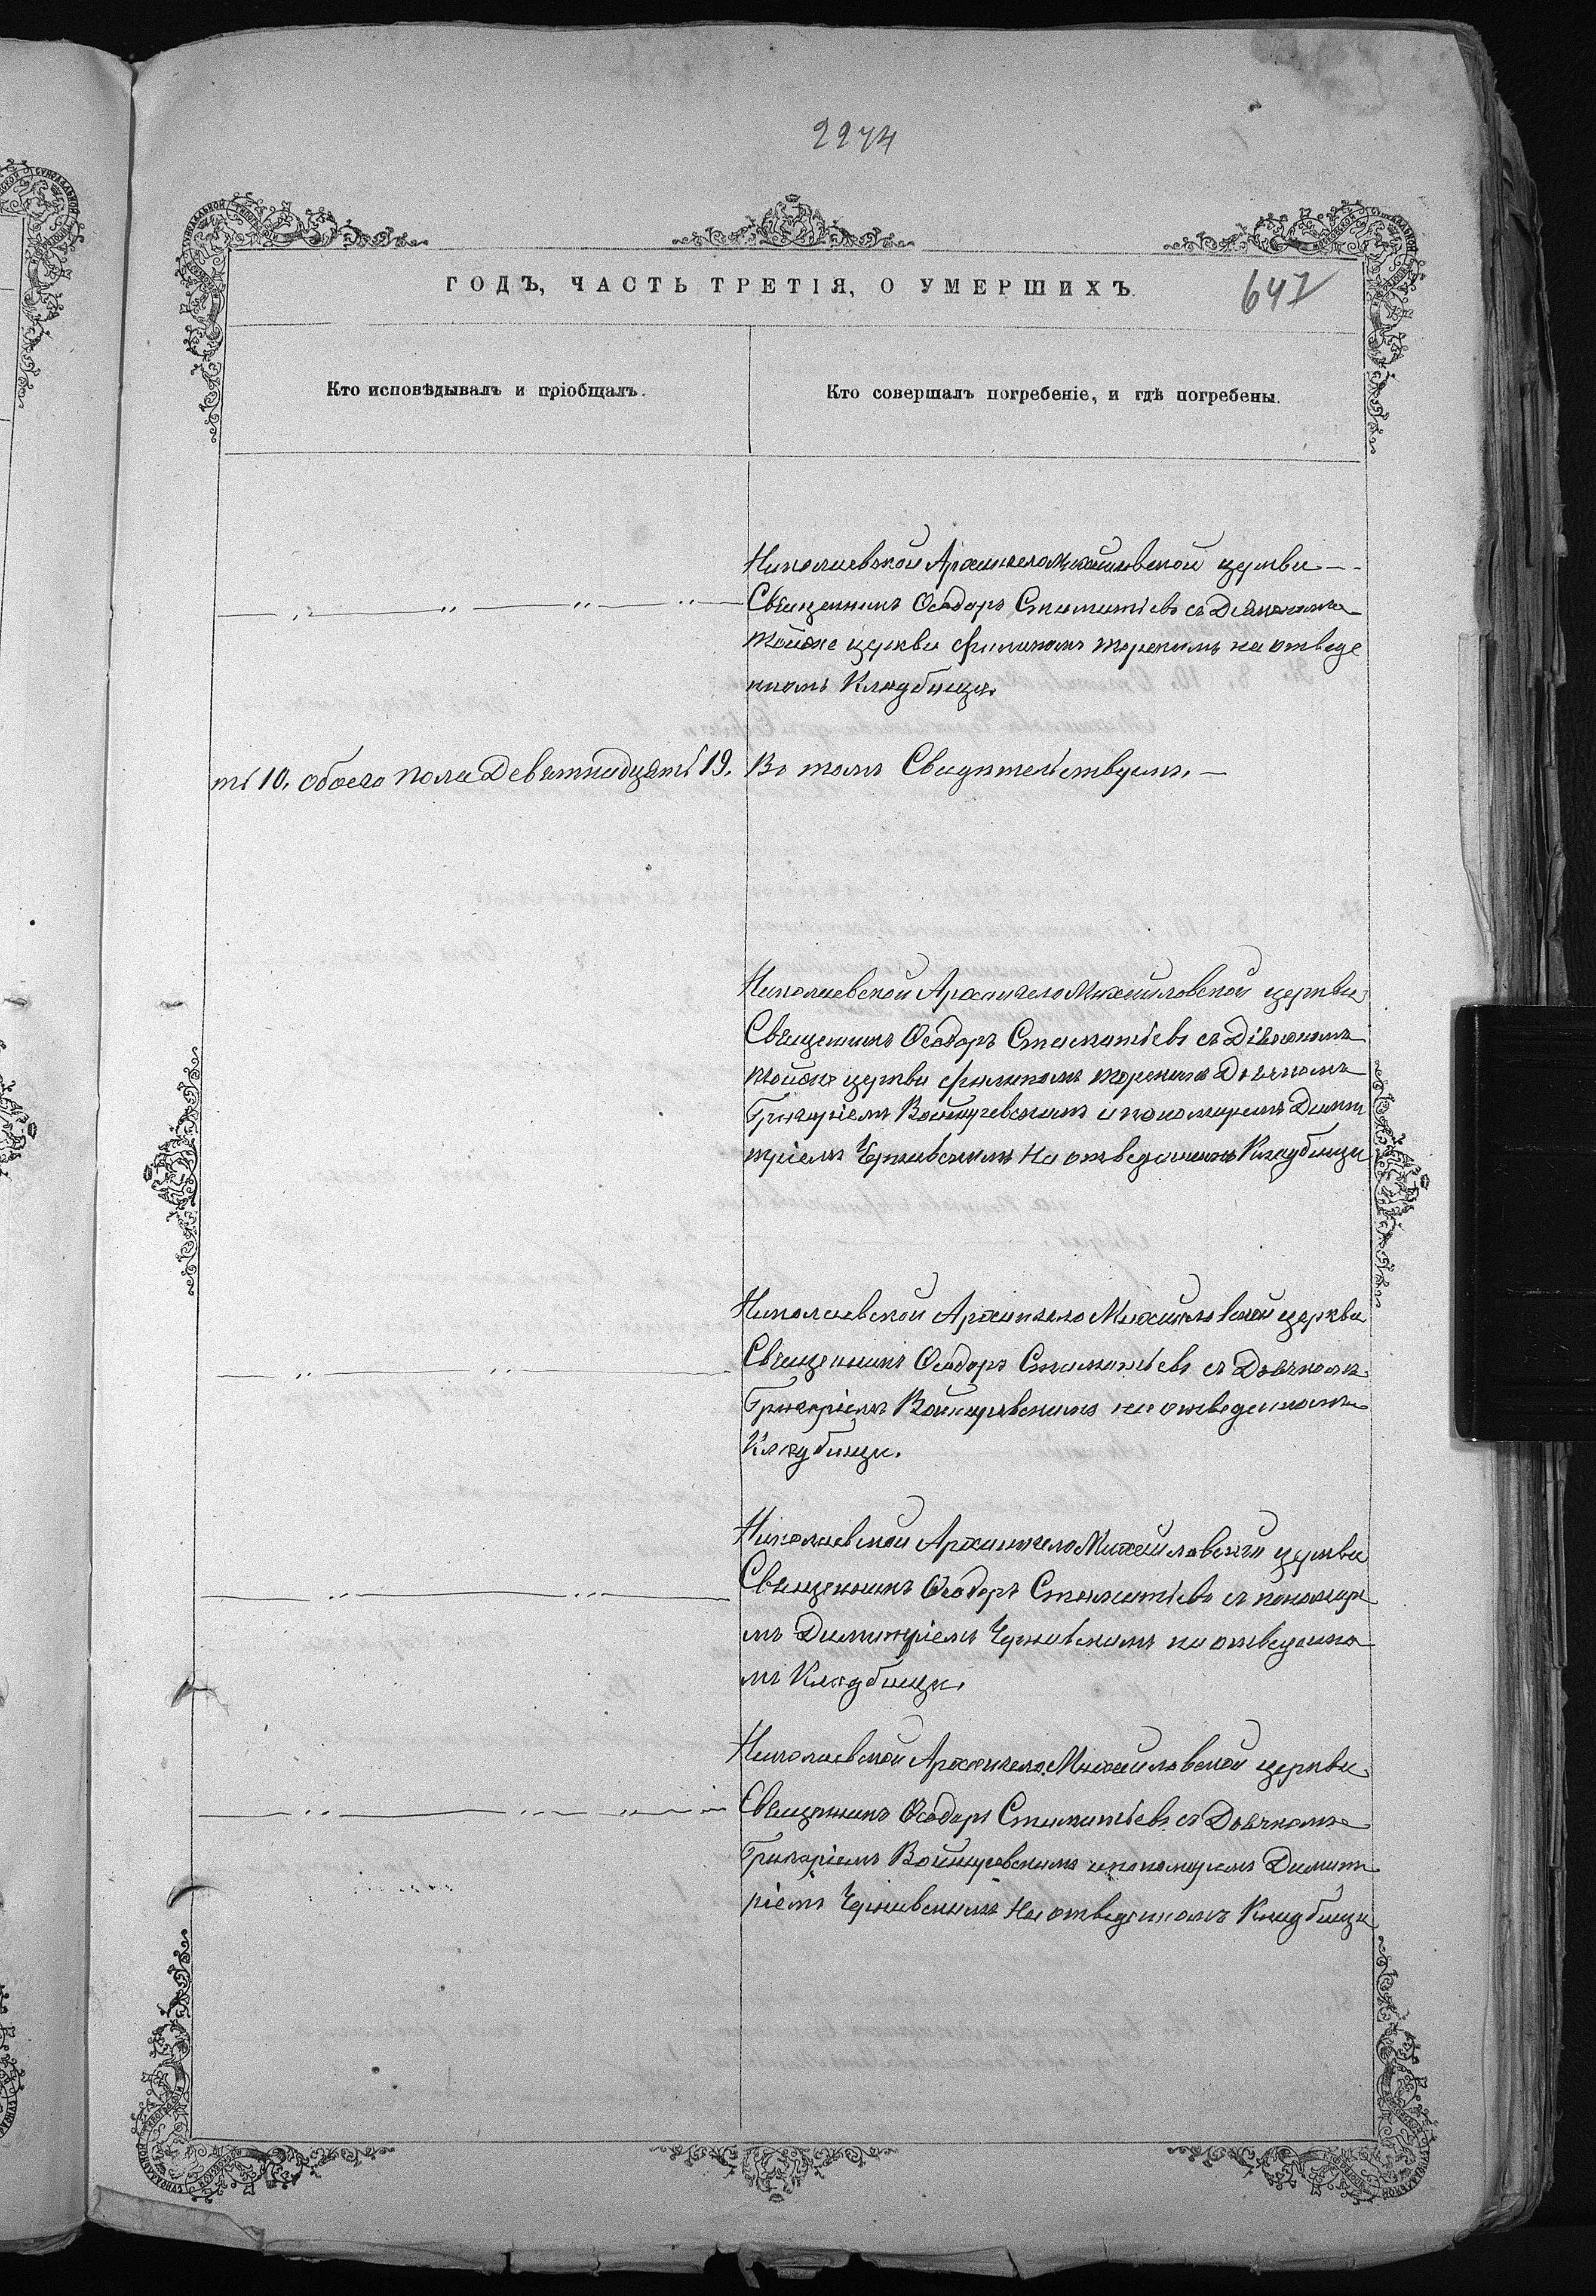 2274
ГОДЪ, ЧАСТЬ ТРЕТІЯ, О УМЕРШИХЪ.
647
Кто исповѣдывалъ и пріобщалъ.
Кто совершалъ погребеніе, и гдѣ погребены.
Николаевской Архангело Михайловской церкви
Священникъ Ѳеодоръ Стаматіевъ съ Дьячкомъ
тойже церкви Филипомъ на отведе
номъ Кладбищи.
ть 10. обоего пола Девятнадцать 19.
Въ томъ Свидѣтельствуемъ.
Николаевской Архангело Михайловской церкви
Священникъ Ѳеодоръ Стаматіевъ съ Діякономъ
тойже церкви Филипомъ Дьячкомъ
Григоріемъ Войцеховскимъ и пономаремъ Дими
тріемъ Чернявскимъ На отведенномъ Кладбищи
Николаевской Архангело Михайловской церкви
Священникъ Ѳеодоръ Стаматіевъ съ Дьячкомъ
Григоріемъ Войцеховскимъ на отведенномъ
Кладбищи.
Николаевской Архангело Михайловской церкви
Священникъ Ѳеодоръ Стаматіевъ съ пономаре
мъ Димитріемъ Чернявскимъ на отведенно
мъ Кладбищи.
Николаевской Архангело Михайловской церкви
Священникъ Ѳеодоръ Стаматіевъ съ Дьячкомъ
Григоріемъ Войцеховскимъ и пономаремъ Димит
ріемъ Чернявскимъ На отведенномъ Кладбищи